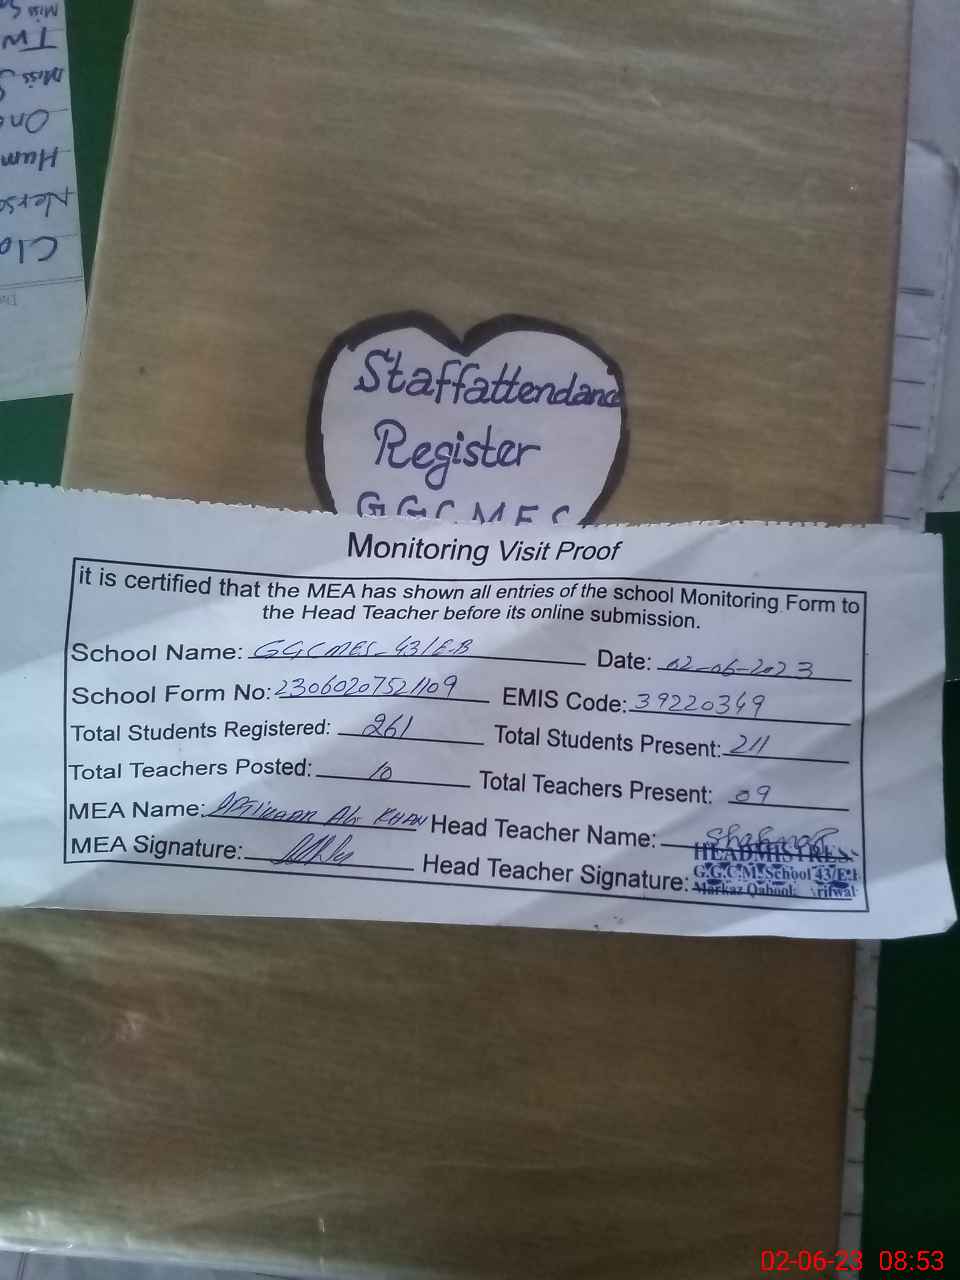 Staffattendanc
Register
GGCMES
Monitoring Visit Proof
it is certified that the MEA has shown all entries of the school Monitoring Form to
the Head Teacher before its online submission.
School Name: GGCMES-43/E.B Date: 02-06-2023
School Form No: 23060207521109 EMIS Code: 39220349
Total Students Registered: 261 Total Students Present: 211
Total Teachers Posted: 10 Total Teachers Present: 09
MEA Name: Ali KHAN Head Teacher Name: Shahnaz
MEA Signature: Head Teacher Signature:
HEADMISTRESS
G.G.C.M.School 43/E.B
Markaz Qaboola
Miss
TW
Miss
One
Hum
Nerse
Cla
02-06-23 08:53